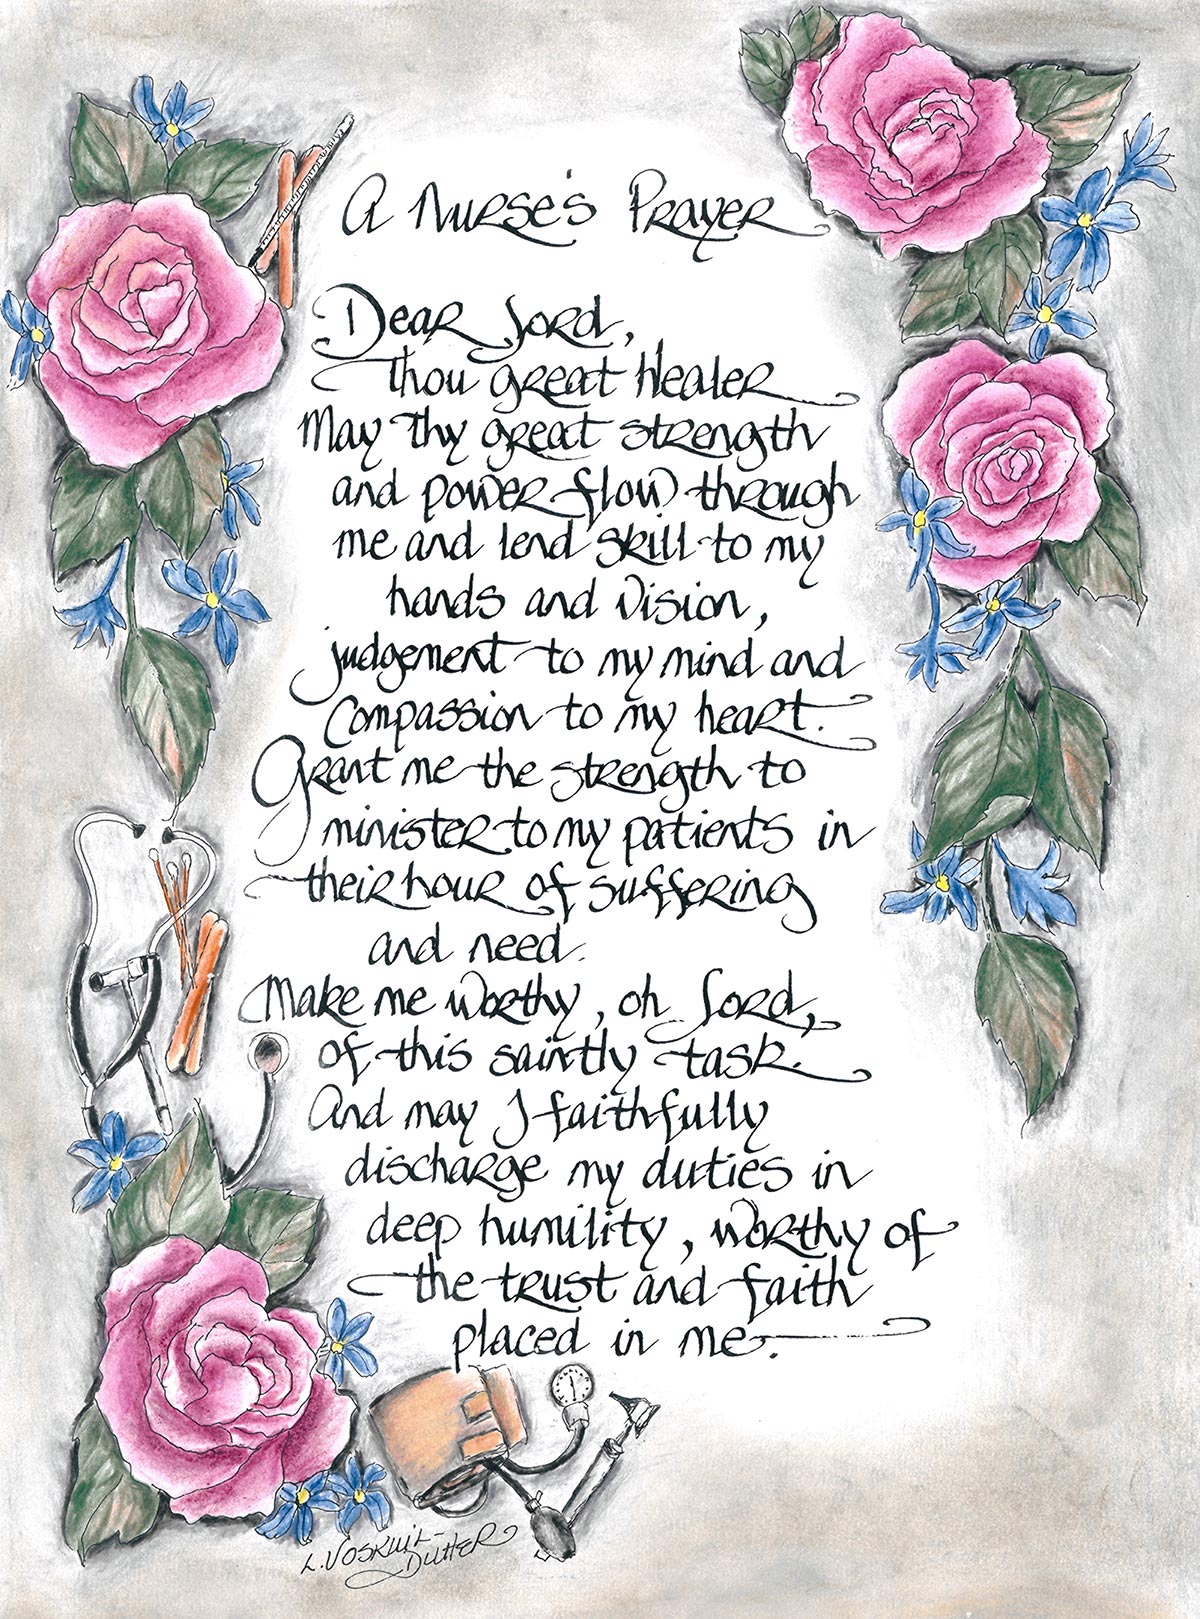 A Nurse's Prayer
Dear Lord,
Thou great Healer
May Thy great strength
and power flow through
me and lend skill to my
hands and vision,
judgement to my mind and
Compassion to my heart.
Grant me the strength to
minister to my patients in
their hour of suffering
and need.
Make me worthy, oh Lord,
of this saintly task.
And may I faithfully
discharge my duties in
deep humility, worthy of
the trust and faith
placed in me.
L. Voskuil-
Dutter